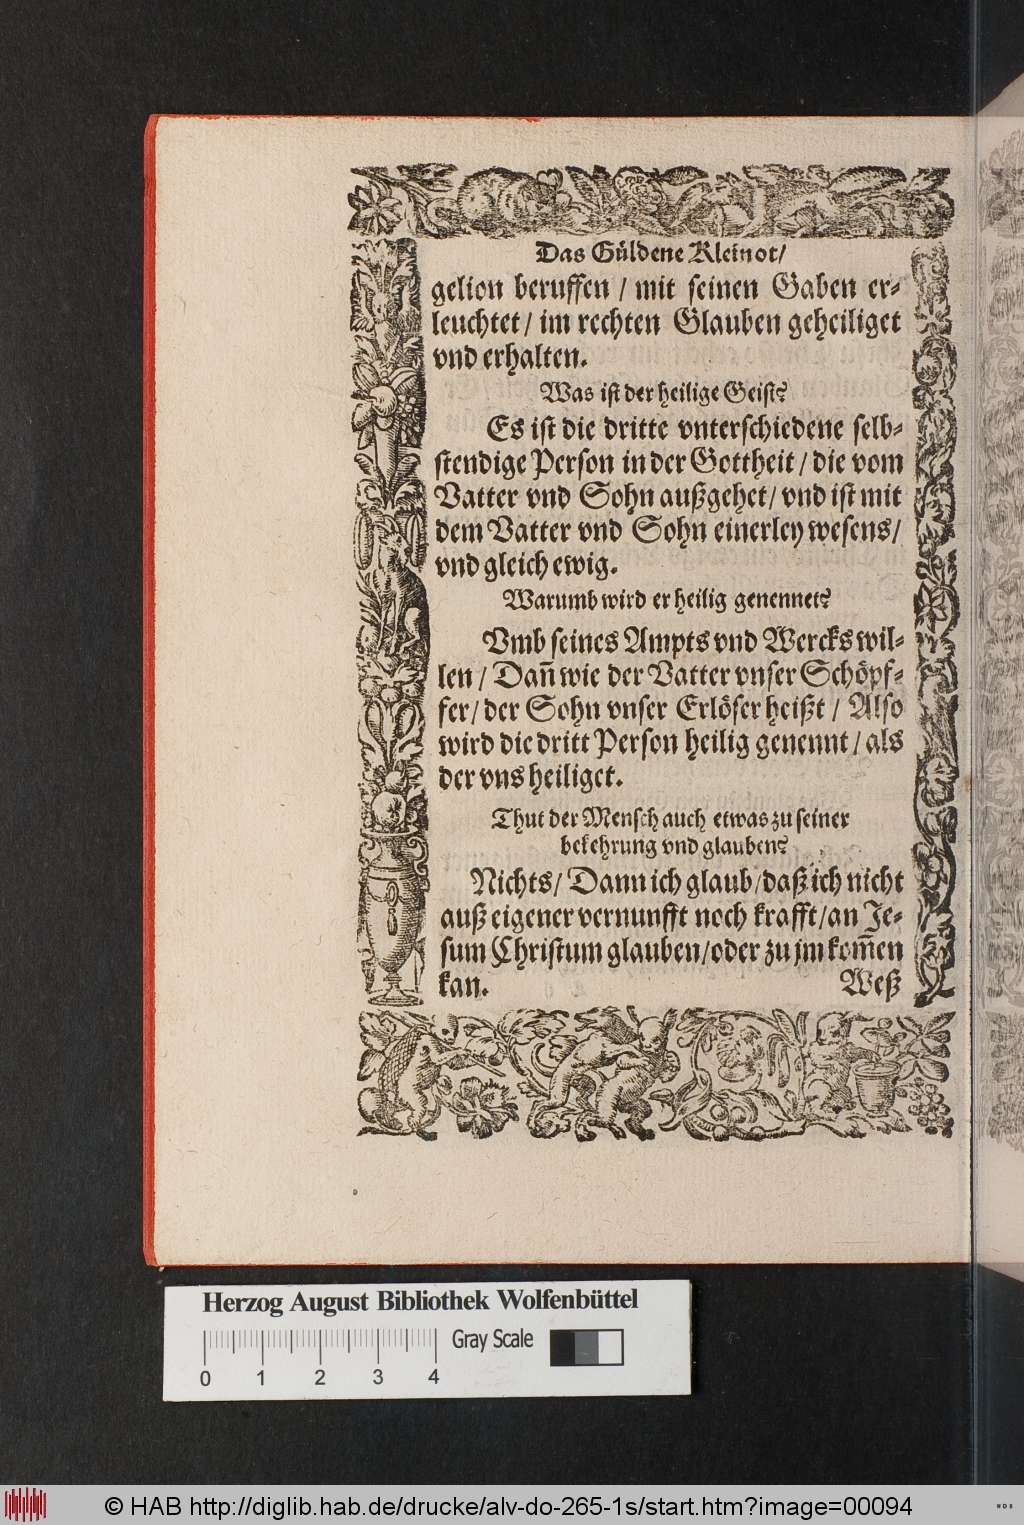 Das Güldene Kleinot/
gelion beruffen / mit seinen Gaben er-
leuchtet / im rechten Glauben geheiliget
vnd erhalten.
Was ist der heilige Geist?
Es ist die dritte vnterschiedene selb-
stendige Person in der Gottheit / die vom
Vatter vnd Sohn außgehet / vnd ist mit
dem Vatter vnd Sohn einerley wesens /
vnd gleich ewig.
Warumb wird er heilig genennet?
Vmb seines Ampts vnd Wercks wil-
len / Dañ wie der Vatter vnser Schöpf-
fer / der Sohn vnser Erlöser heißt / Also
wird die dritt Person heilig genennt / als
der vns heiliget.
Thut der Mensch auch etwas zu seiner
bekehrung vnd glauben?
Nichts / Dann ich glaub / daß ich nicht
auß eigener vernunfft noch krafft / an Je-
sum Christum glauben / oder zu jm kom̃en
kan. Weß
Herzog August Bibliothek Wolfenbüttel
Gray Scale
0 1 2 3 4
© HAB http://diglib.hab.de/drucke/alv-do-265-1s/start.htm?image=00094